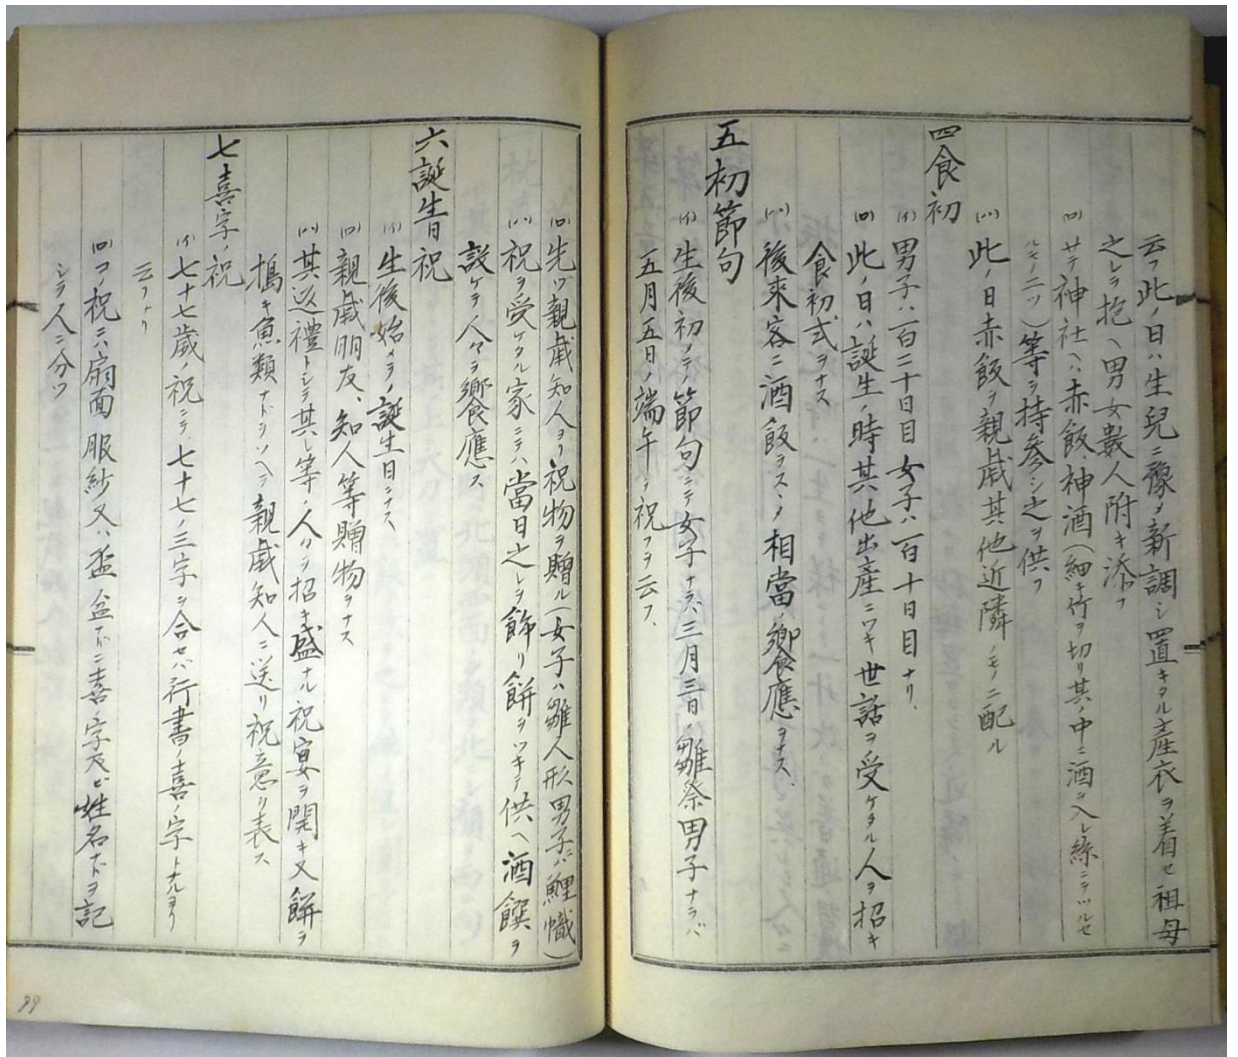 云フ此ノ日ハ生兒ニ豫メ新調シ置キタル産衣ヲ着セ祖母
之レヲ抱ヘ男女數人附キ添フ
(ロ)サテ神社ヘハ赤飯神酒(細キ竹ヲ切リ其ノ中ニ酒ヲ入レ縁ニテツルセ
ルモノ二ツ)等ヲ持參シ之ヲ供フ
(ハ)此ノ日赤飯ヲ親戚其他近隣ノモノニ配ル
四食初
(イ)男子ハ百二十日目女子ハ百十日目ナリ、
(ロ)此ノ日ハ誕生ノ時其他出産ニツキ世話ヲ受ケタル人ヲ招キ
食初式ヲナス
(ハ)後來客ニ酒飯ヲスヽメ相當ノ郷食應ヲナス
五初節句
(イ)生後初メテノ節句ニテ女子ナラバ三月三日ノ雛祭男子ナラバ
五月五日ノ端午ヲ祝フヲ云フ、
(ロ)先ヅ親戚知人ヨリ祝物ヲ贈ル(女子ハ雛人形男子ハ鯉幟)
(ハ)祝ヲ受ケタル家ニテハ當日之レヲ飾リ餅ヲツキテ供ヘ酒饌ヲ
設ケテ人々ヲ饗應ス
六誕生日祝
(イ)生後始メテノ誕生日ニナス、
(ロ)親戚朋友、知人等贈物ヲナス
(ハ)其返禮トシテ其レ等ノ人々ヲ招キ盛ナル祝宴ヲ開キ又餅ヲ
搗キ魚類ナドヲソヘテ親戚知人ニ送リ祝意ヲ表ス
七喜字ノ祝
(イ)七十七歳ノ祝ニテ、七十七ノ三字ヲ合セバ行書ノ喜ノ字トナルヨリ
云フナリ
(ロ)コノ祝ニハ扇面服紗又ハ盃盆ナドニ喜ノ字及ビ姓名ナドヲ記
シテ人ニ分ツ
99